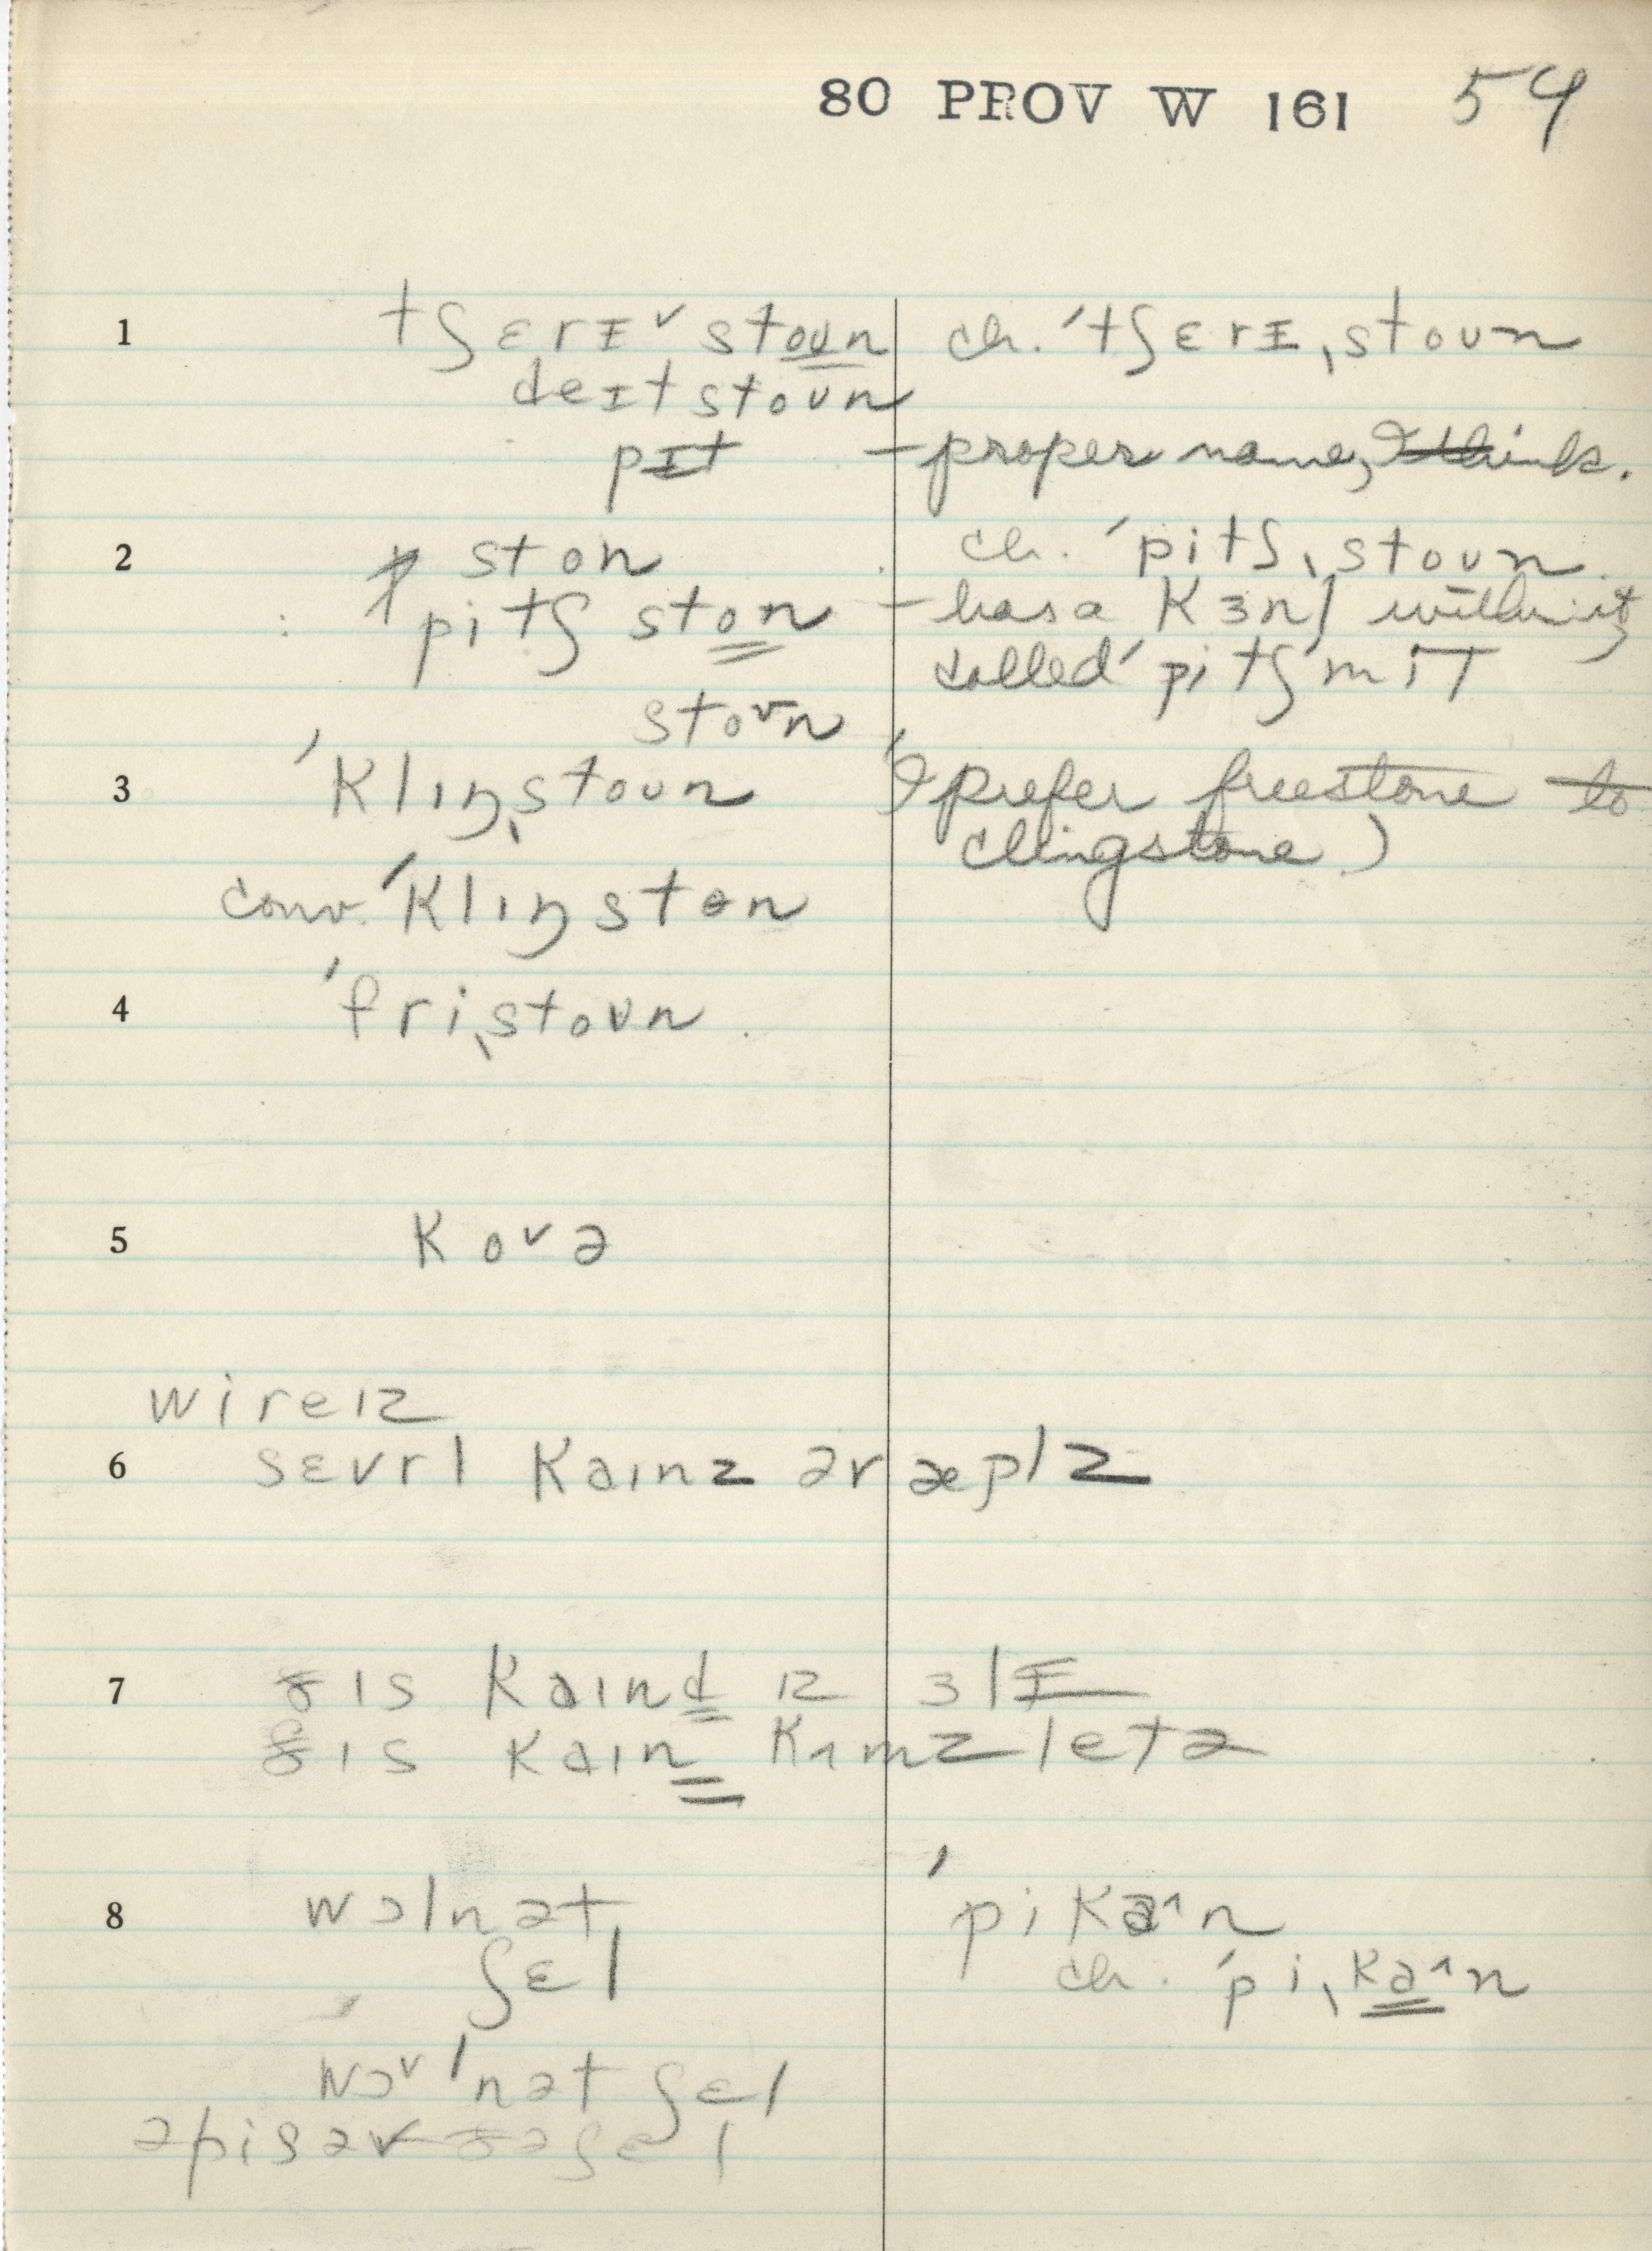 80 PROV W 161 54
1 tʃɛrɪ˅ stoʊn ch. ˈtʃɛrɪˌstoʊn
deɪtstoʊn
pɪt – proper name, I think.
2 ston ch. ˈpitʃˌstoʊn
pitʃ ston – has a kɜnl within it,
called ˈpitʃ mɪT
stoʊn
3 ˈklɪŋˌstoʊn (I prefer freestone to
clingstone)
conv. ˈklɪŋston
4 ˈfriˌstoʊn
5 ko˅ə
wireɪz
6 sɛvrl kaɪnz ər æplz
7 ðɪs kaɪnd ɪz ɜlɪ
ðɪs kaɪn kʌmz letə
8 wɔlnət ˈpika^n
ʃɛl ch. ˈpiˌka^n
wɔ˅lnət ʃɛl
əpisəv ðəʃɛl